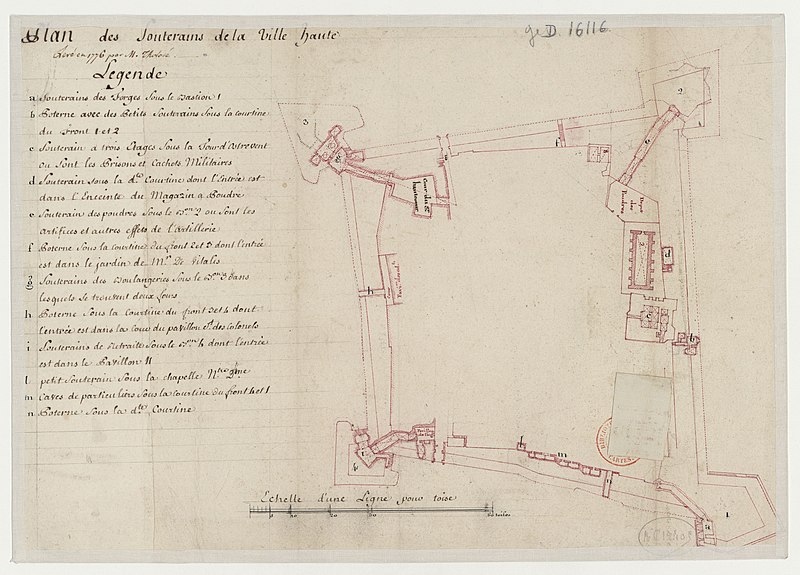 Plan des Souterains de la Ville haute
Levé en 1776 par M.
Légende
a Souterains des Forges Sous le Bastion 1
b Poterne avec des Petits Souterains Sous la Courtine
du Front 1 et 2
c Souterain a trois Etages Sous la Tour d'Ostrevent
ou Sont les Prisons et Cachots Militaires
d Souterain Sous la de. Courtine dont l'Entrée est
dans l'Enceinte du Magazin a Poudre
e Souterain des poudres Sous le Bon 2 ou Sont les
artifices et autres effets de l'artillerie
f Poterne Sous la Courtine du front 2 et 3 dont l'entrée
est dans le jardin de Mr. De Vitalis
g Souterains des Boulangeries Sous le Bon 3 dans
lesquels se trouvent deux fours
h Poterne Sous la Courtine du front 3 et 4 dont
l'entrée est dans la cour du pavillon Dt. des Colonels
i Souterains de Retraite Sous le Bon 4 dont l'entrée
est dans le Pavillon H
l petit Souterain Sous la chapelle Ntre Dme
m Caves de particuliers Sous la Courtine du front 4 et 1
n Poterne Sous la dte. Courtine
Echelle d'une Ligne pour toise
ge D. 16116
3
2
g
e
f
Depot des Poudres
d
c
b
h
i
4
l
m
n
a
1